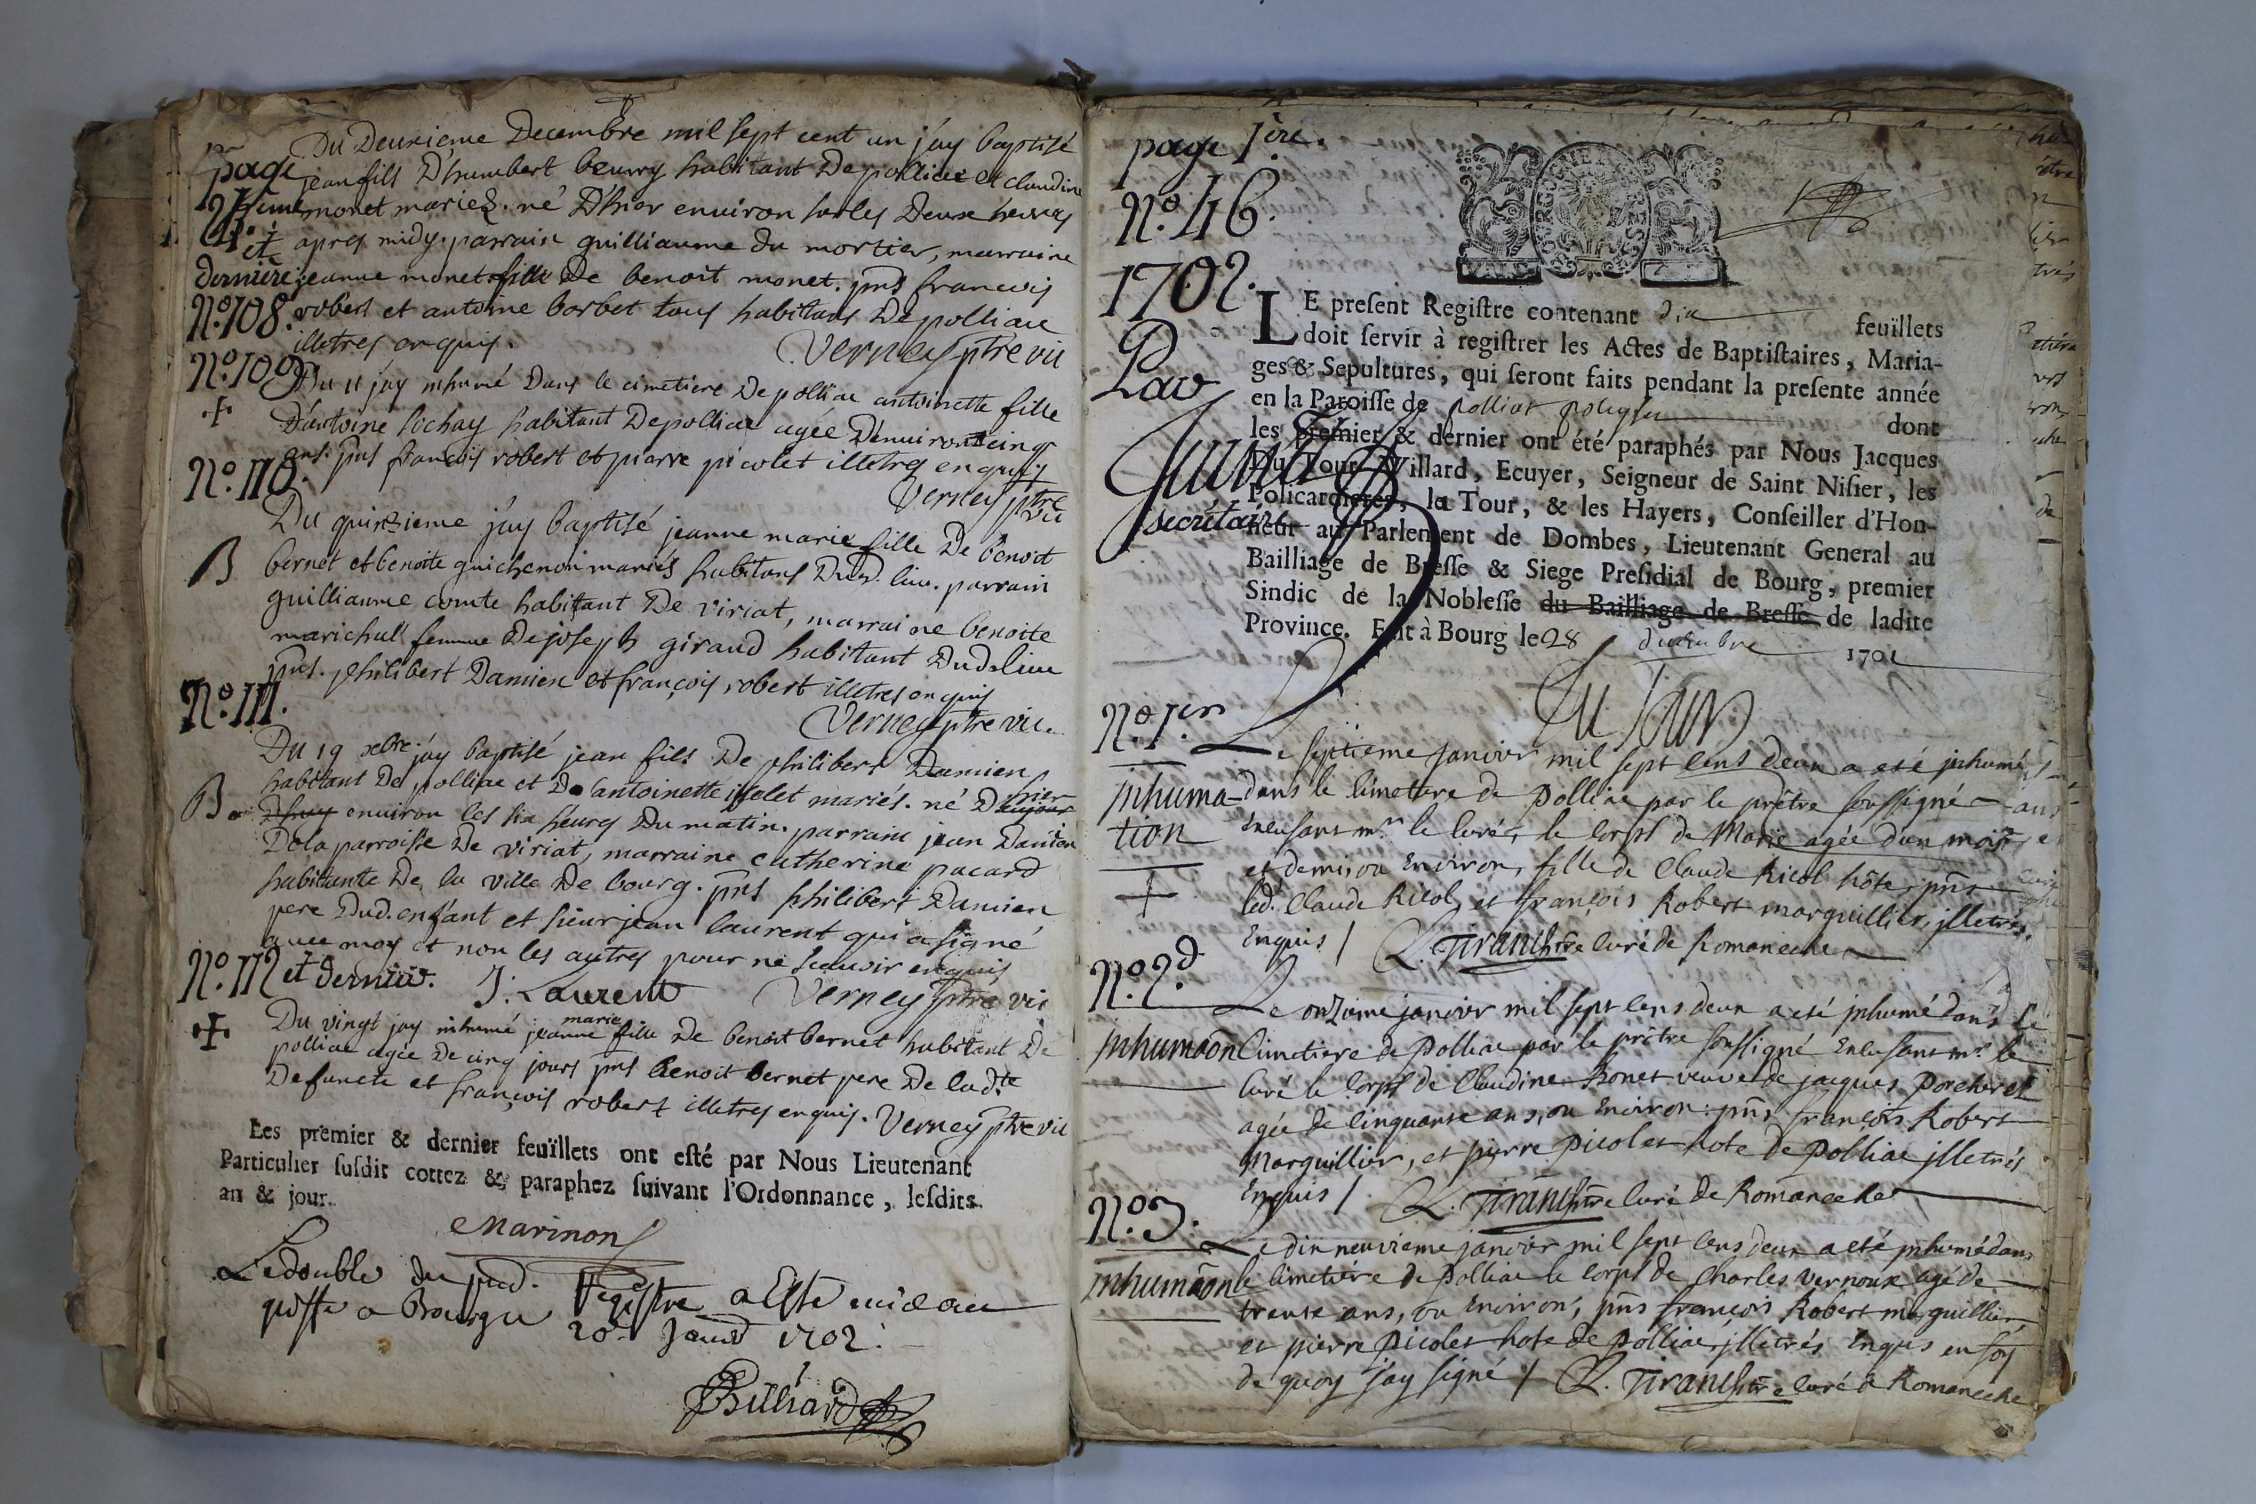 Du Deuxieme Decembre mil sept cent un j'ay baptisé
page
jean fils D'humbert beurry habitant De polliac et claudine
24eme
monet mariés. né D'hier environ sur les Deux heures
et
apres midy. parrain guilliaume du mortier, marraine
derniere
jeanne monet fille De benoit monet. pnts francois
No. 108.
robert et antoine borbet tous habitans De polliac
illetres enquis.
Verney ptre vic
No. 109
Du 11 jay inhumé Dans le cimetiere De polliac antoinette fille
+
D'antoine sochay habitant De polliac agée D'environ cinq
ans. pnts françois robert et pierre picolet illetres enquis
Verney ptre vic
No. 110.
Du quinzieme j'ay baptisé jeanne marie fille De benoit
B
bernet et benoite guichenon mariés habitans Dud. lieu. parrain
guilliaume comte habitant De viriat, marraine benoite
marichal femme De joseph giraud habitant Dud. lieu
pnts. philibert Damien et françois robert illetres enquis
Verney ptre vic.
No. 111.
Du 19 xbre j'ay baptisé jean fils De philibert Damien
habitant De polliac et De antoinette mariés. né D'hier
B.
environ les six heures Du matin. parrain jean Damien
De la parroisse De viriat, marraine catherine pacard
habitante De la ville De bourg. pnts philibert Damien
pere Dud. enfant et sieur jean laurent qui a signé
avec moy et non les autres pour ne scavoir enquis
No. 112 et dernier.
J. Laurent
Verney ptre vic
+
Du vingt jay inhumé jeanne marie fille De benoit bernet habitant De
polliac agée De cinq jours pnts benoit bernet pere De lad.te
Defuncte et françois robert illetres enquis. Verney ptre vic
Les premier & dernier feuïllets ont esté par Nous Lieutenant
Particulier susdit cottez & paraphez suivant l'Ordonnance, lesdits
an & jour.
Marinon
Le double du pnd. Registre a Esté
a Bourg 20e Janv 1702.
Billiard
page 1ere.
No. 46.
1702.
BOURGOGNE ET BRESSE
LE present Registre contenant dix feuïllets
doit servir à registrer les Actes de Baptistaires, Maria-
Pav
ges & Sepultures, qui seront faits pendant la presente année
en la Paroisse de polliat dont
les premier & dernier ont été paraphés par Nous Jacques
Du Tour-Villard, Ecuyer, Seigneur de Saint Nisier, les
Policardieres, la Tour, & les Hayers, Conseiller d'Hon-
secretaire
neur au Parlement de Dombes, Lieutenant General au
Bailliage de Bresse & Siege Presidial de Bourg, premier
Sindic de la Noblesse du Bailliage de Bresse de ladite
Province. Fait à Bourg le 28 decembre 1701
Du Tour
No. 1er
Le septieme janvier mil sept cens deux a eté jnhumé
jnhuma-
dans le cimetiere de polliac par le prêtre soussigné
tion
En l'absance mr le curé, le corps de Marie agée d'un mois
+
et demi ou Environ, fille de Claude Ricol hôte, pnts
led. Claude Ricol, et françois Robert marguillier, jlletrés
Enquis / L. Tirand ptre curé de Romaneche
No. 2d
Le onzieme janvier mil sept cens deux a eté jnhumé dans le
jnhumaõn
Cimetiere de polliac par le prêtre soussigné En l'absance mr le
Curé le corps de Claudine Bonet veuve de jacques porcheret
agée de cinquante ans, ou Environ. pnts françois Robert
Marguillier, et pierre picolet hote de polliac jlletrés
Enquis / L. Tirand ptre curé de Romaneche
No. 3.
Le dix neuvieme janvier mil sept cens deux a eté jnhumé dans
jnhumaõn
le cimetiére de polliac le corps de Charles vernoux agé de
trente ans, ou Environ, pnts françois Robert marguillier
et pierre picolet hote de polliac, jlletrés Enquis en foy
de quoy jay signé / L. Tirand ptre curé a Romaneche